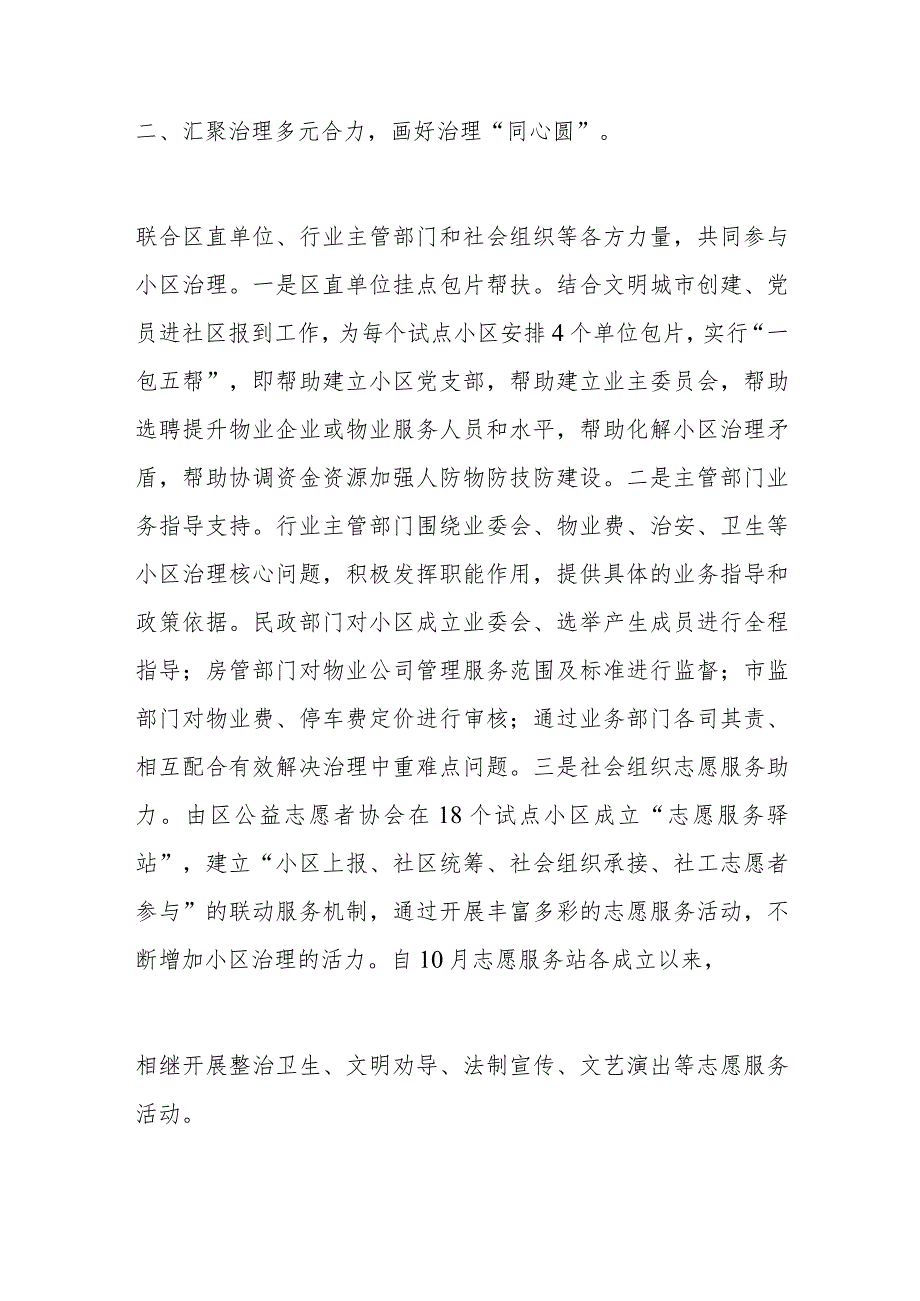 二、汇聚治理多元合力，画好治理“同心圆”。
联合区直单位、行业主管部门和社会组织等各方力量，共同参与
小区治理。一是区直单位挂点包片帮扶。结合文明城市创建、党
员进社区报到工作，为每个试点小区安排4个单位包片，实行“一
包五帮”，即帮助建立小区党支部，帮助建立业主委员会，帮助
选聘提升物业企业或物业服务人员和水平，帮助化解小区治理矛
盾，帮助协调资金资源加强人防物防技防建设。二是主管部门业
务指导支持。行业主管部门围绕业委会、物业费、治安、卫生等
小区治理核心问题，积极发挥职能作用，提供具体的业务指导和
政策依据。民政部门对小区成立业委会、选举产生成员进行全程
指导；房管部门对物业公司管理服务范围及标准进行监督；市监
部门对物业费、停车费定价进行审核；通过业务部门各司其责、
相互配合有效解决治理中重难点问题。三是社会组织志愿服务助
力。由区公益志愿者协会在18个试点小区成立“志愿服务驿
站”，建立“小区上报、社区统筹、社会组织承接、社工志愿者
参与”的联动服务机制，通过开展丰富多彩的志愿服务活动，不
断增加小区治理的活力。自10月志愿服务站各成立以来，
相继开展整治卫生、文明劝导、法制宣传、文艺演出等志愿服务
活动。